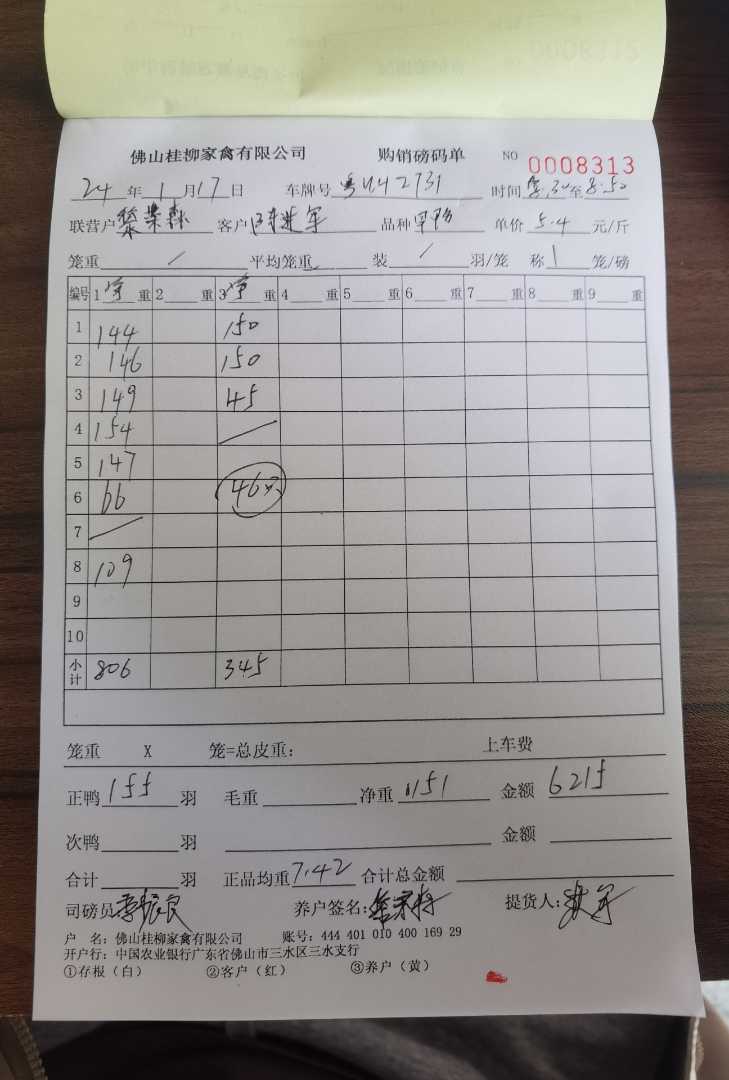 佛山桂柳家禽有限公司 购销磅码单 NO 0008313
24 年 1 月 17 日 车牌号 时间 至 8:50
联营户 客户 品种 单价 5.4 元/斤
笼重 / 平均笼重 装 / 羽/笼 称 1 笼/磅
编号 1 净 重 2 重 3 净 重 4 重 5 重 6 重 7 重 8 重 9 重
1 144 150
2 146 150
3 149 45
4 154 /
5 147
6 66 46只
7 /
8 109
9
10
小计 806 345
笼重 X 笼=总皮重: 上车费
正鸭 155 羽 毛重 净重 1151 金额 6215
次鸭 羽 金额
合计 羽 正品均重 7.42 合计总金额
司磅员 养户签名: 提货人:
户 名: 佛山桂柳家禽有限公司 账号: 444 401 010 400 169 29
开户行: 中国农业银行广东省佛山市三水区三水支行
①存根（白） ②客户（红） ③养户（黄）